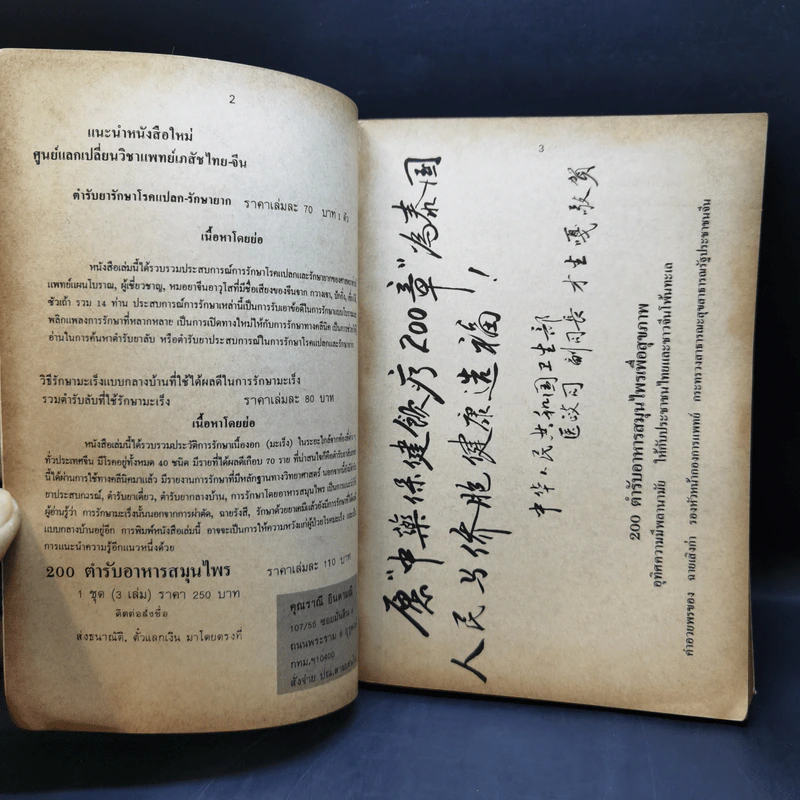 2
แนะนำหนังสือใหม่
ศูนย์แลกเปลี่ยนวิชาแพทย์เภสัชไทย-จีน
ตำรับยารักษาโรคแปลก-รักษายาก ราคาเล่มละ 70 บาท
เนื้อหาโดยย่อ
หนังสือเล่มนี้ได้รวบรวมประสบการณ์การรักษาโรคแปลกและรักษายากของ
แพทย์แผนโบราณ, ผู้เชี่ยวชาญ, หมอยาจีนอาวุโสที่มีชื่อเสียงของจีนจาก กวางเจา, ปักกิ่ง,
ซัวเถา รวม 14 ท่าน ประสบการณ์การรักษาเหล่านี้เป็นการรับเอาข้อดีในการรักษาแบบโบราณ
พลิกแพลงการรักษาที่หลากหลาย เป็นการเปิดทางใหม่ให้กับการรักษาทางคลินิค
อ่านในการค้นหาตำรับยาลับ หรือตำรับยาประสบการณ์ในการรักษาโรคแปลกและรักษายาก
วิธีรักษามะเร็งแบบกลางบ้านที่ใช้ได้ผลดีในการรักษามะเร็ง
รวมตำรับลับที่ใช้รักษามะเร็ง ราคาเล่มละ 80 บาท
เนื้อหาโดยย่อ
หนังสือเล่มนี้ได้รวบรวมประวัติการรักษาเนื้องอก (มะเร็ง) ในระยะใกล้จาก
ทั่วประเทศจีน มีโรคอยู่ทั้งหมด 40 ชนิด มีรายที่ได้ผลดีเกือบ 70 ราย ที่น่าสนใจก็คือตำรับยา
นี้ได้ผ่านการใช้ทางคลีนิคมาแล้ว มีรายงานการรักษาที่มีหลักฐานทางวิทยาศาสตร์
ยาประสบการณ์, ตำรับยาเดี่ยว, ตำรับยากลางบ้าน, การรักษาโดยอาหารสมุนไพร
ผู้อ่านรู้ว่า การรักษามะเร็งนั้นนอกจากการผ่าตัด, ฉายรังสี, รักษาด้วยยาเคมีแล้วยังมีการรักษา
แบบกลางบ้านอยู่อีก การพิมพ์หนังสือเล่มนี้ อาจจะเป็นการให้ความหวังแก่ผู้ป่วยโรคมะเร็ง
การแนะนำความรู้อีกแนวหนึ่งด้วย
200 ตำรับอาหารสมุนไพร ราคาเล่มละ 110 บาท
1 ชุด (3 เล่ม) ราคา 250 บาท
ติดต่อสั่งซื้อ
ส่งธนาณัติ, ตั๋วแลกเงิน มาโดยตรงที่
คุณราณี
107/56 ซอย
ถนนพระราม 6
กทม.ฯ10400
สั่งจ่าย ปณ.
3
愿"中药保健飲疗200章"為泰国
人民与侨胞健康造福!
中华人民共和国卫生部
医政司 副司长 才生嘎 敬贺
200 ตำรับอาหารสมุนไพรเพื่อสุขภาพ
อุทิศความมีพลานามัย ให้กับประชาชนไทยและชาวจีนโพ้นทะเล
คำอวยพรของ รองหัวหน้ากองการแพทย์ กระทรวงสาธารณะสุขสาธารณรัฐประชาชนจีน